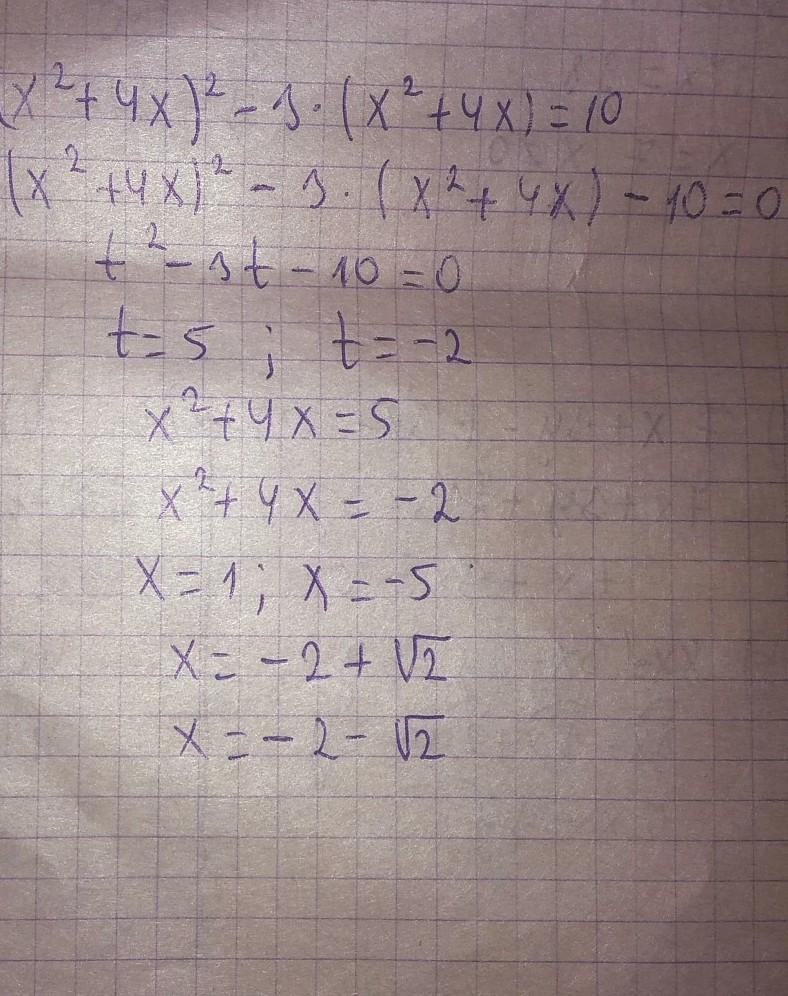 (x²+4x)²-3·(x²+4x)=10
(x²+4x)²-3·(x²+4x)-10=0
t²-3t-10=0
t=5 ; t=-2
x²+4x=5
x²+4x=-2
x=1; x=-5
x=-2+√2
x=-2-√2